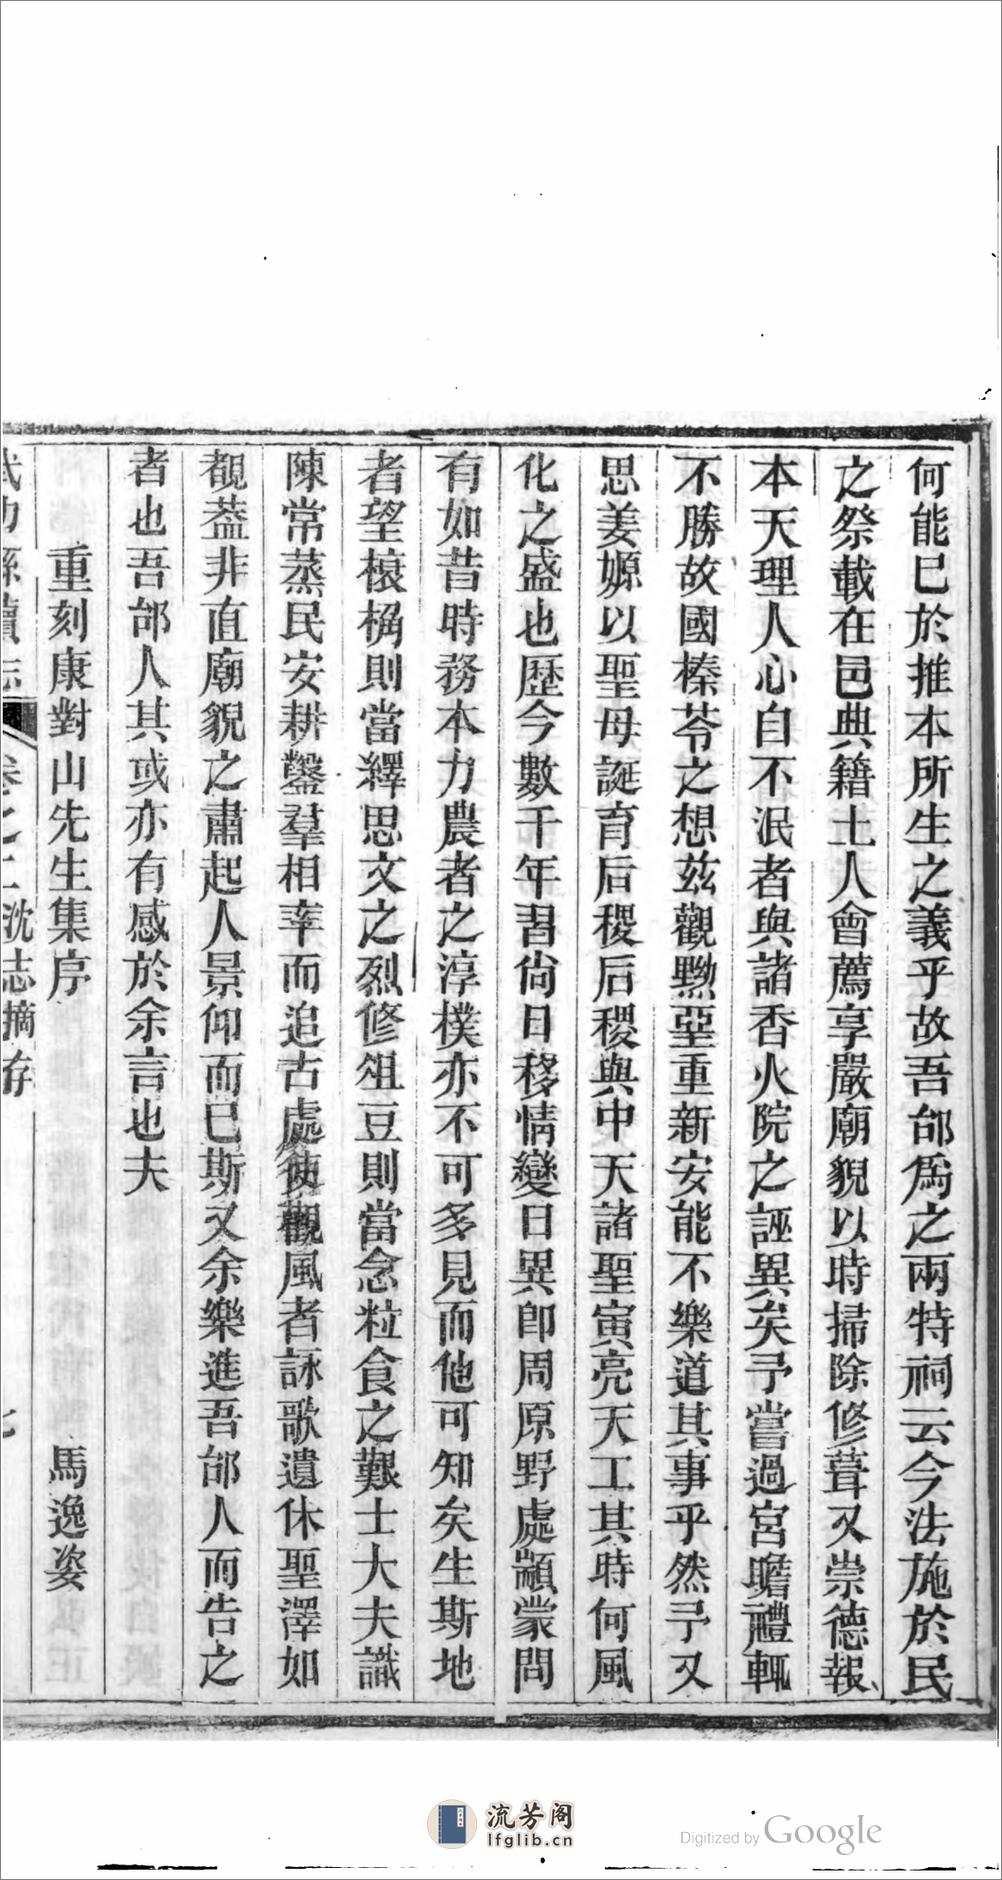 何能已於推本所生之義乎故吾邰爲之兩特祠云今法施於民
之祭載在邑典籍土人會薦享嚴廟貌以時掃除修葺又崇德報
本天理人心自不泯者與諸香火院之誣異矣予嘗過宮瞻禮輒
不勝故國榛苓之想茲觀黝堊重新安能不樂道其事乎然予又
思姜嫄以聖母誕育后稷后稷與中天諸聖寅亮天工其時何風
化之盛也歷今數千年習尙日移情變日異卽周原野處顓蒙問
有如昔時務本力農者之淳樸亦不可多見而他可知矣生斯地
者望榱桷則當繹思文之烈修俎豆則當念粒食之艱士大夫識
陳常蒸民安耕鑿羣相率而追古處使觀風者詠歌遺休聖澤如
覩葢非直廟貌之肅起人景仰而已斯又余樂進吾邰人而告之
者也吾邰人其或亦有感於余言也夫
重刻康對山先生集序 馬逸姿
武功縣續志 卷之二沈志摘存 七
流芳阁
lfglib.cn
Digitized by Google